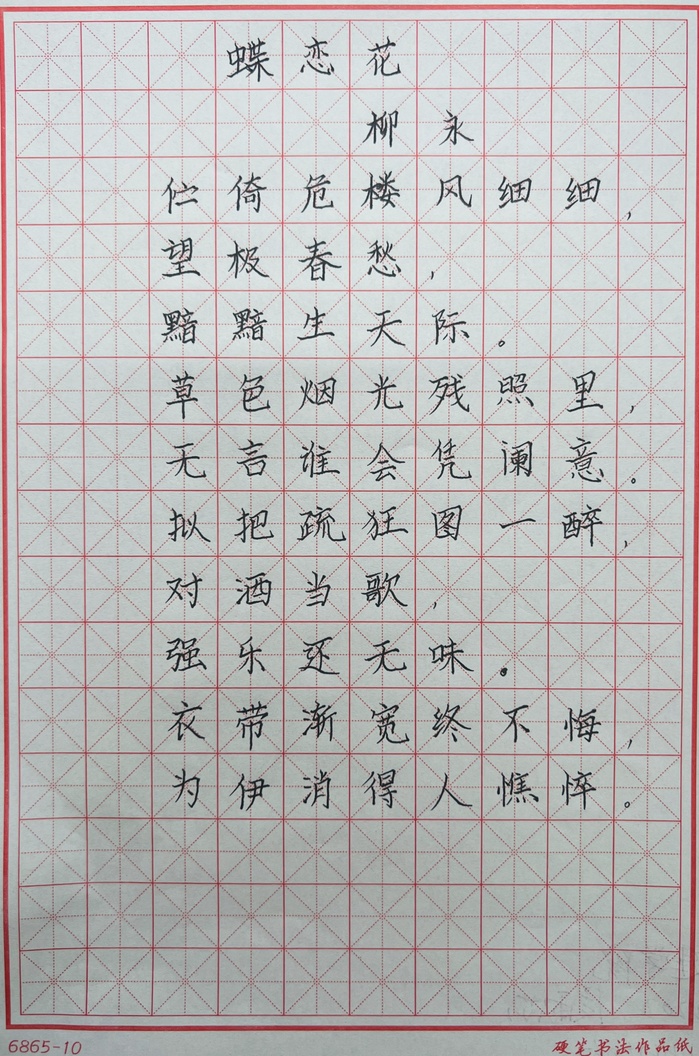 蝶恋花
柳永
伫倚危楼风细细，
望极春愁，
黯黯生天际。
草色烟光残照里，
无言谁会凭阑意。
拟把疏狂图一醉，
对酒当歌，
强乐还无味。
衣带渐宽终不悔，
为伊消得人憔悴。
6865-10 硬笔书法作品纸